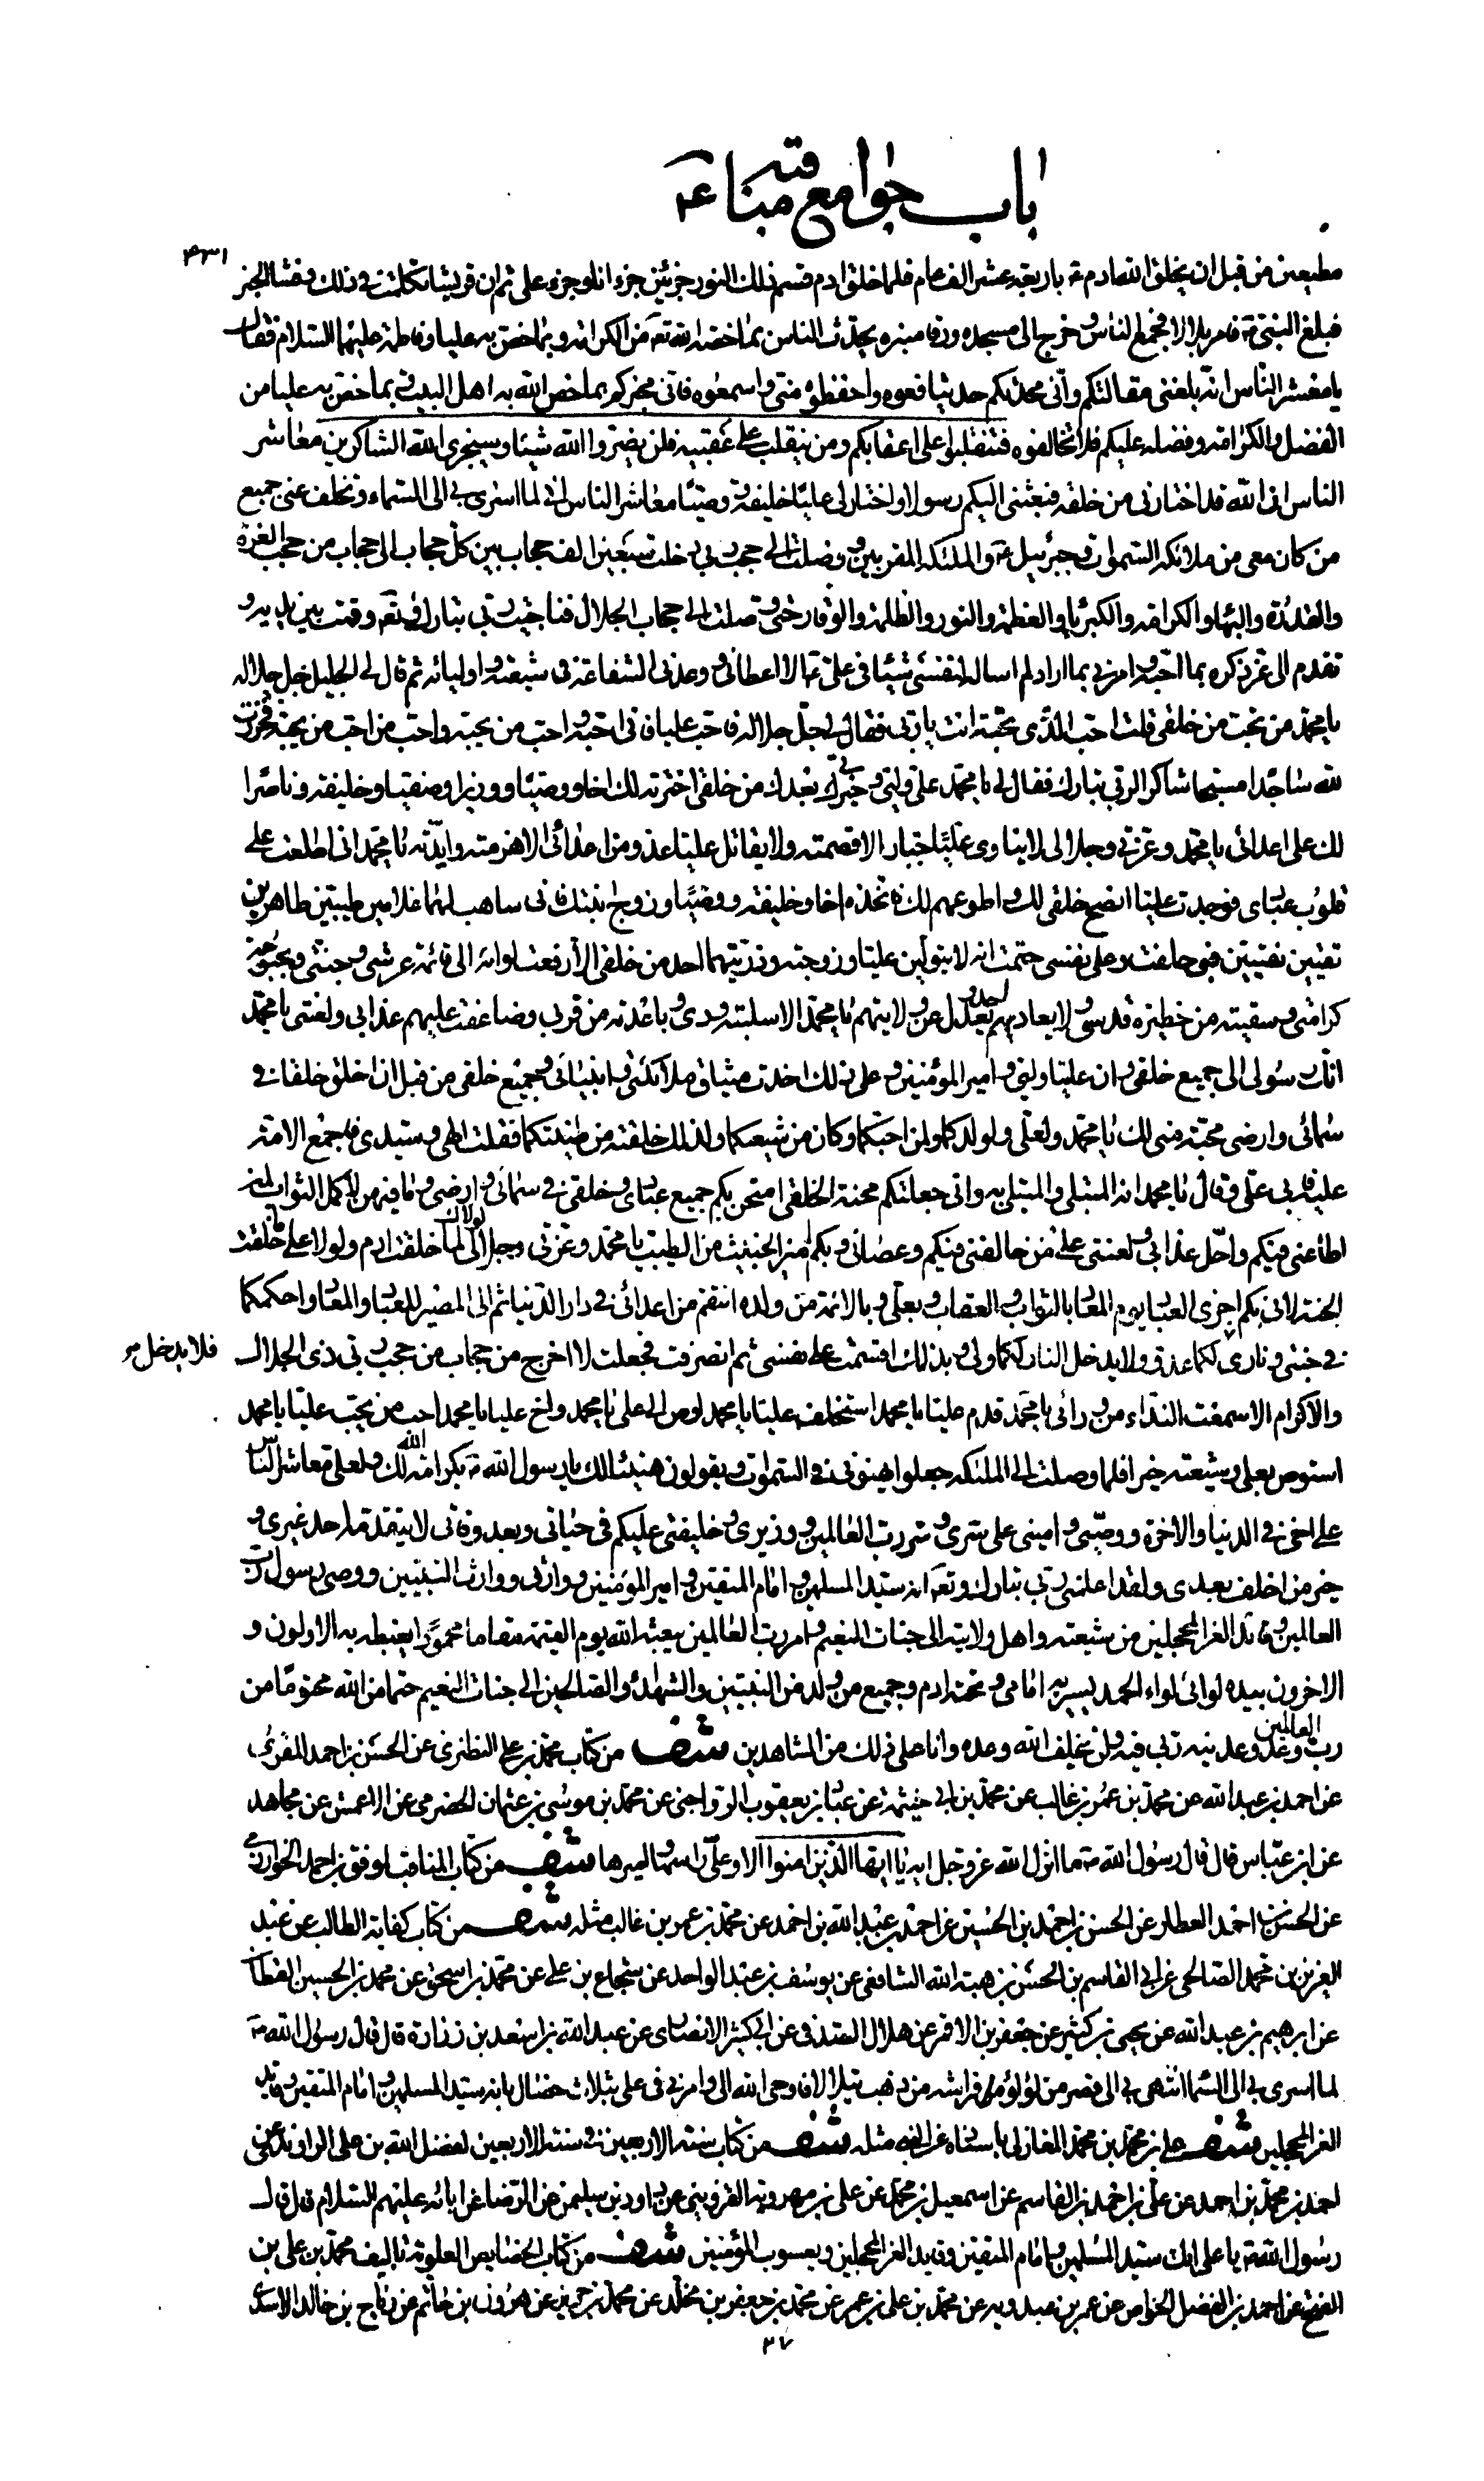 باب جوامع مناقبه ع
٤٣١
مطيعين من قبل ان يخلق الله ادم ع باربعة عشر الف عام فلما خلق ادم قسم ذلك النور جزئين جزء انا وجزء على ثم ان قريشا تكلمت فى ذلك وفشا الخبر
فبلغ النبى ص فامر بلالا فجمع الناس وخرج الى مسجده ورقا منبره يحدث الناس بما خصه الله تع من الكرامة وبما خص به عليا وفاطمة عليهما السلام فقال
يا معشر الناس انه بلغنى مقالتكم وانى محدثكم حديثا فعوه واحفظوه منى واسمعوه فانى مخبركم بما خص الله به اهل البيت وبما خص به عليا من
الفضل والكرامة وفضله عليكم فلا تخالفوه فتنقلبوا على اعقابكم ومن ينقلب على عقبيه فلن يضر الله شيئا وسيجزى الله الشاكرين معاشر
الناس ان الله قد اختارنى من خلقه فبعثنى اليكم رسولا واختار لى عليا خليفة ووصيا معاشر الناس انى لما اسرى بى الى السماء وتخلف عنى جميع
من كان معى من ملائكة السموات وجبرئيل ع والملئكة المقربين ووصلت الى حجب ربى دخلت سبعين الف حجاب بين كل حجاب الى حجاب من حجب العزة
والقدرة والبهاء والكرامة والكبرياء والعظمة والنور والظلمة والوقار حتى وصلت الى حجاب الجلال فناجيت ربى تبارك وتع وقمت بين يديه و
تقدم الى عز ذكره بما احبه وامرنى بما اراد لم اساله لنفسى شيئا فى على ع الا اعطانى ووعدنى الشفاعة فى شيعته واوليائه ثم قال لى الجليل جل جلاله
يا محمد من تحب من خلقى قلت احب الذى تحبه انت يا ربى فقال لى جل جلاله فاحب عليا فانى احبه واحب من يحبه واحب من احب من يحبه فخررت
لله ساجدا مسبحا شاكرا لربى تبارك فقال لى يا محمد على وليى وخيرتى بعدك من خلقى اخترته لك اخا ووصيا ووزيرا وصفيا وخليفة وناصرا
لك على اعدائى يا محمد وعزتى وجلالى لا يناوى عليا جبار الا قصمته ولا يقاتل عليا عدو من اعدائى الا هزمته وابدته يا محمد انى اطلعت على
قلوب عبادى فوجدت عليا انصح خلقى لك واطوعهم لك فاتخذه اخا وخليفة ووصيا وزوج ابنتك فانى ساهب لهما غلامين طيبين طاهرين
تقيين نقيين فبى حلفت وعلى نفسى حتمت انه لا يتولين عليا وزوجته وذريتهما احد من خلقى الا رفعت لوائه الى قائمة عرشى وجنتى وبحبوحة
كرامتى وسقيته من حظيرة قدسى ولا يعاديهم احد ويعدل عن ولايتهم يا محمد الا سلبته ودى وباعدته من قربى وضاعفت عليهم عذابى ولعنتى يا محمد
انك رسولى الى جميع خلقى وان عليا وليى وامير المؤمنين وعلى ذلك اخذت ميثاق ملائكتى وانبيائى وجميع خلقى من قبل ان اخلق خلقا فى
سمائى وارضى محبة منى لك يا محمد ولعلى ولولدكما ولمن احبكما وكان من شيعتكما ولذلك خلقته من طينتكما فقلت الهى وسيدى فاجمع الامة
عليه فابى على وقال يا محمد انه المبتلى والمبتلى به وانى جعلتكم محنة لخلقى امتحن بكم جميع عبادى وخلقى فى سمائى وارضى وما فيهن لاكمل الثواب لمن
اطاعنى فيكم واحل عذابى ولعنتى على من خالفنى فيكم وعصانى وبكم اميز الخبيث من الطيب يا محمد وعزتى وجلالى لولاك لما خلقت ادم ولولا على ما خلقت
الجنة لانى بكم اجزى العباد يوم المعاد بالثواب والعقاب وبعلى وبالائمة من ولده انتقم من اعدائى فى دار الدنيا ثم الى المصير للعباد والمعاد واحكمكما
فى جنتى ونارى فلا يدخل الجنة لكما عدو ولا يدخل النار لكما ولى وبذلك اقسمت على نفسى ثم انصرفت فجعلت لا اخرج من حجاب من حجب ربى ذى الجلال
والاكرام الا سمعت النداء من ورائى يا محمد قدم عليا يا محمد استخلف عليا يا محمد اوص الى على يا محمد واخ عليا يا محمد احب من يحب عليا يا محمد
استوص بعلى وشيعته خيرا فلما وصلت الى الملئكة جعلوا يهنونى فى السموات ويقولون هنيئا لك يا رسول الله ص بكرامة الله لك ولعلى معاشر الناس
على اخى فى الدنيا والاخرة ووصيى وامينى على سرى وسر رب العالمين ووزيرى وخليفتى عليكم فى حياتى وبعد وفاتى لا يتقدمه احد غيرى و
خير من اخلف بعدى ولقد اعلمنى ربى تبارك وتع انه سيد المسلمين وامام المتقين وامير المؤمنين ووارثى ووارث النبيين ووصى رسول رب
العالمين وقائد الغر المحجلين من شيعته واهل ولايته الى جنات النعيم بامر رب العالمين يبعثه الله يوم القيمة مقاما محمودا يغبطه به الاولون و
الاخرون بيده لوائى لواء الحمد يسير به امامى وتحته ادم وجميع من ولد من النبيين والشهداء والصالحين الى جنات النعيم حتما من الله محتوما من
رب العالمين وعد وعدنيه ربى فيه ولن يخلف الله وعده وانا على ذلك من الشاهدين شف من كتاب محمد بن على النطنزى عن الحسن بن احمد المقرى
عن احمد بن عبد الله عن محمد بن عمر بن غالب عن محمد بن ابى خيثمة عن عباد بن يعقوب الرواجنى عن محمد بن موسى بن عثمان الحضرمى عن الاعمش عن مجاهد
عن ابن عباس قال قال رسول الله ص ما انزل الله عز وجل اية يا ايها الذين امنوا الا وعلى راسها واميرها شف من كتاب المناقب لموفق بن احمد الخوارزمى
عن الحسن بن احمد العطار عن الحسن بن احمد بن الحسين عن احمد بن عبد الله بن احمد عن محمد بن عمر بن غالب مثله شف من كتاب كفاية الطالب عن عبد
العزيز بن محمد الصالحى عن ابى القاسم بن الحسن بن هبة الله الشافعى عن يوسف بن عبد الواحد عن شجاع بن على عن محمد بن اسحق عن محمد بن الحسين القطان
عن ابرهيم بن عبد الله عن يحيى بن كثير عن جعفر بن الاقمر عن هلال الصدفى عن ابى كثير الانصارى عن عبد الله بن اسعد بن زرارة قال قال رسول الله ص
لما اسرى بى الى السماء انتهى بى الى قصر من لؤلؤ فراشه من ذهب يتلألأ فاوحى الله الى وامرنى فى على بثلاث خصال بانه سيد المسلمين وامام المتقين وقائد
الغر المحجلين شف على بن محمد بن محمد المغازلى باسناده عن مثله شف من كتاب سنة الاربعين فى سنة الاربعين لفضل الله بن على الراوندى عن
احمد بن محمد بن احمد عن على بن احمد بن القاسم عن اسمعيل بن محمد عن على بن مهرويه القزوينى عن داود بن سليمن عن الرضا عن ابائه عليهم السلام قال قال
رسول الله ص يا على انك سيد المسلمين وامام المتقين وقايد الغر المحجلين ويعسوب المؤمنين شف من كتاب الخصايص العلوية تاليف محمد بن على بن
الفتح عن احمد بن الفضل الخواص عن عمر بن عبدويه عن محمد بن على بن عمر عن محمد بن جعفر بن مخلد عن محمد بن عن هرون بن حاتم عن رياح بن خالد الاسدى
٣٧